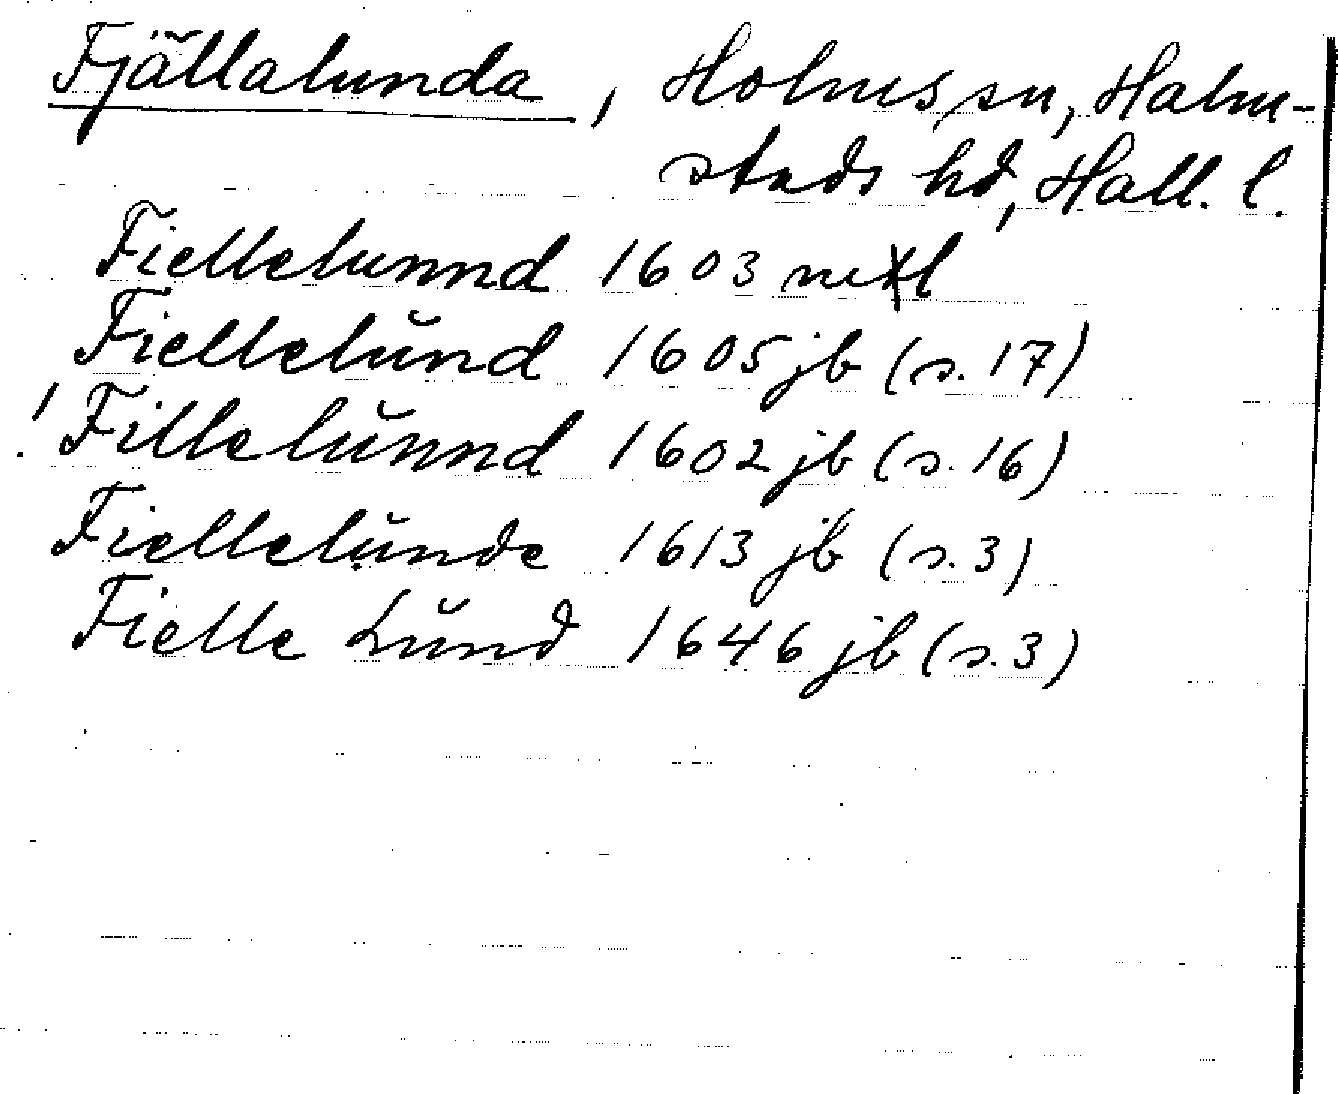 Fjällalunda, Holms sn, Halm-
stads hd, Hall. l.
Fiellelunnd 1603 mtxl
Fiellelŭnd 1605 jb (s. 17)
! Fillelŭnnd 1602 jb (s. 16)
Fiellelŭnde 1613 jb (s. 3)
Fielle Lŭnd 1646 jb (s. 3)